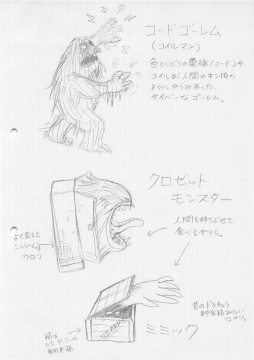 コードゴーレム
(コイルマン)
色とりどりの電線(コード)や
コイルが人間のキン肉の
ようにからみあった、
サイバーなゴーレム。
クロゼット
モンスター
人間を待ちぶせて
食べるヤツら。
よく見ると
ここらへんは
ウロコ
ミミック
昔の
貯金箱みたい
なヤツ。